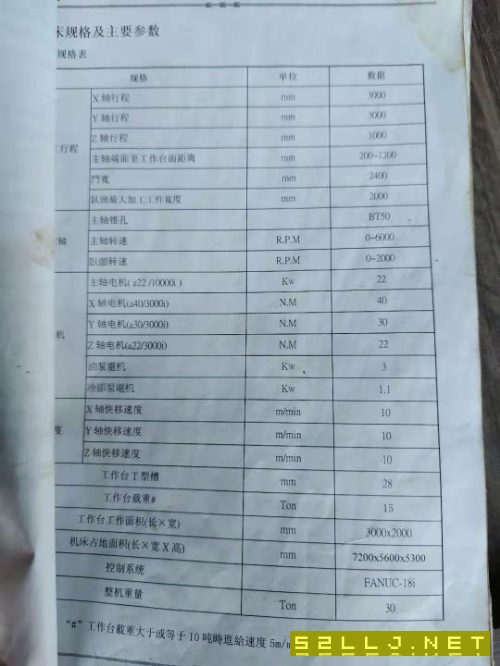 床规格及主要参数
规格表
规格 单位 数据
X 轴行程 mm 3000
Y 轴行程 mm 3000
Z 轴行程 mm 1000
工行程 主轴端面至工作台面距离 mm 200~1200
門宽 mm 2400
臥頭最大加工工件宽度 mm 2000
主轴锥孔 BT50
轴 主轴转速 R.P.M 0~6000
臥頭转速 R.P.M 0~2000
主轴电机( a22 /10000i ) Kw 22
X 轴电机(a40/3000i) N.M 40
机 Y 轴电机(a30/3000i) N.M 30
Z 轴电机(a22/3000i) N.M 22
油泵電机 Kw 3
冷卻泵電机 Kw 1.1
X 轴快移速度 m/min 10
度 Y 轴快移速度 m/min 10
Z 轴快移速度 m/min 10
工作台 T 型槽 mm 28
工作台載重# Ton 15
工作台工作面积(长×宽) mm 3000x2000
机床占地面积(长×宽 X 高) mm 7200x5600x5300
控制系统 FANUC-18i
整机重量 Ton 30
"#" 工作台載重大于或等于 10 吨時進給速度 5m/m
52LLJ.NET